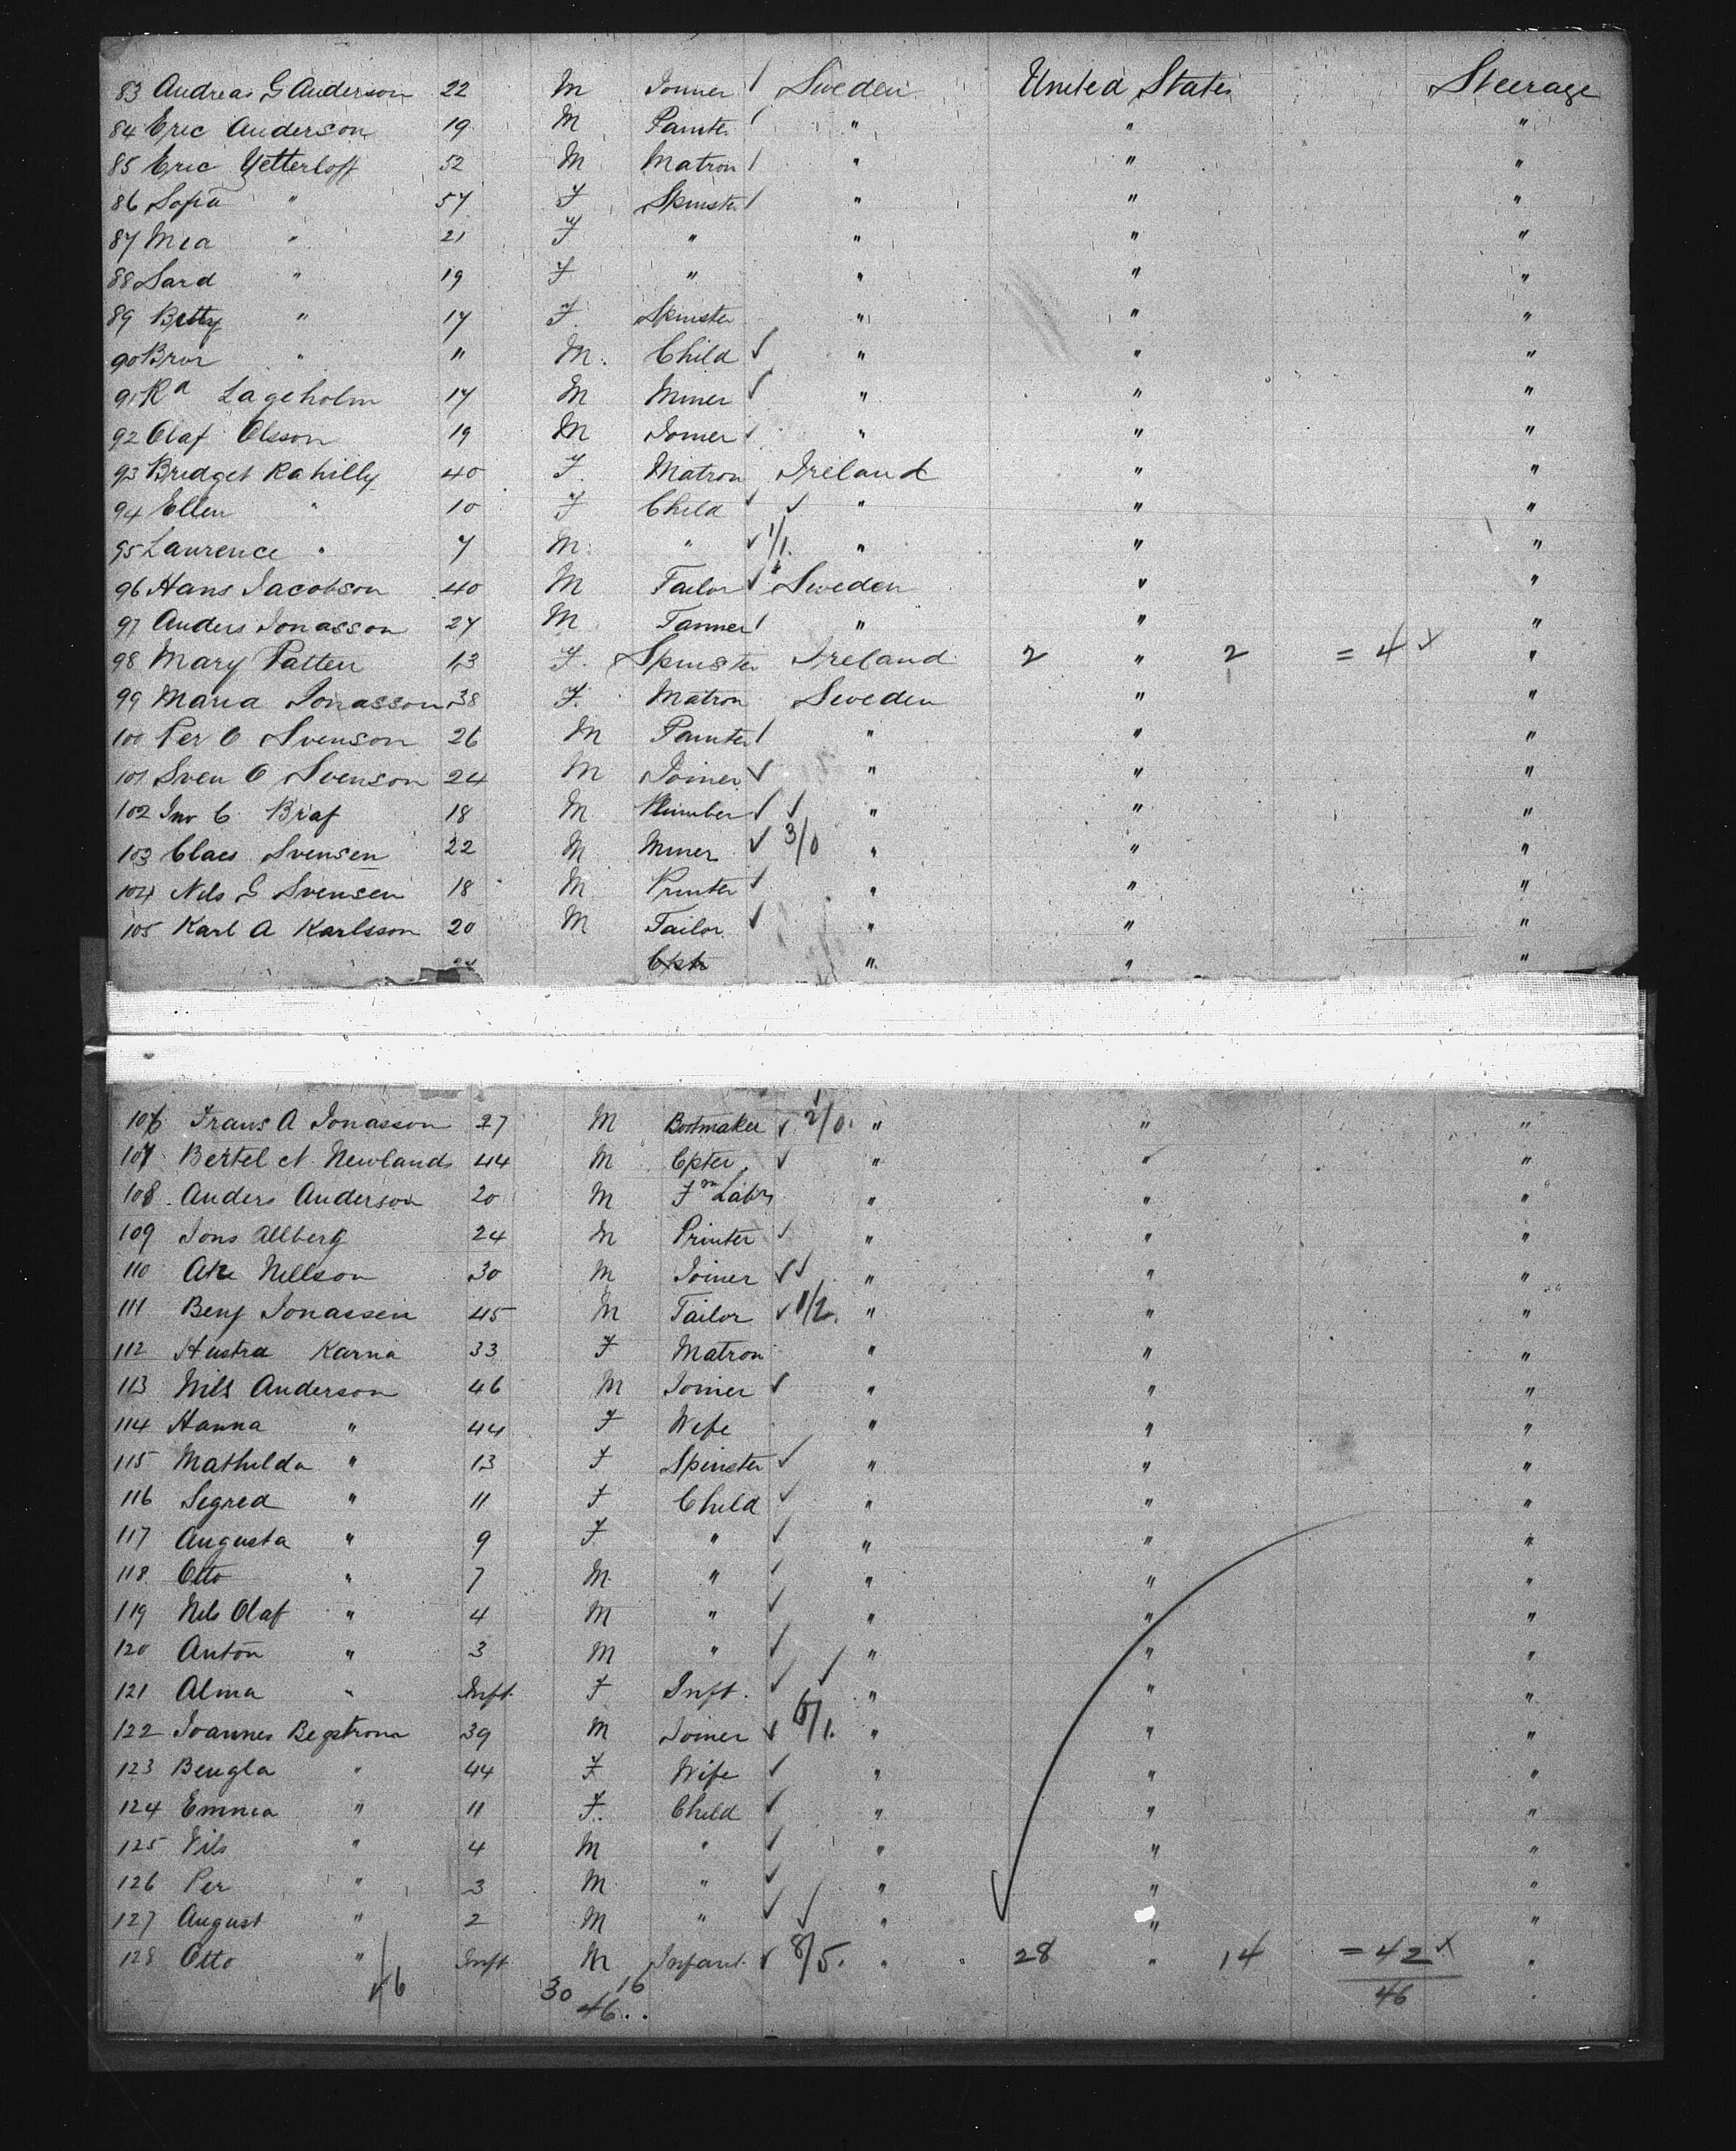 83 Andreas G Anderson 22 M Joiner Sweden United States Steerage
84 Eric Anderson 19 M Painter " " "
85 Eric Yetterloff 52 M Matron " " "
86 Sofia " 57 F Spinster " " "
87 Mia " 21 F " " " "
88 Sard " 19 F " " " "
89 Betty " 17 F. Spinster " " "
90 Bror " 11 M. Child ✓ " " "
91 Ra Lageholm 17 M Miner ✓ " " "
92 Olaf Olsson 19 M Joiner ✓ " " "
93 Bridget Rahilly 40 F. Matron Ireland " "
94 Ellen " 10 F Child ✓ ✓ " " "
95 Laurence " 7 M. " ✓ 1/1. " " "
96 Hans Jacobson 40 M Tailor ✓ Sweden " "
97 Anders Jonasson 27 M Tanner " " "
98 Mary Patten 13 F. Spinster Ireland 2 " 2 = 4 x "
99 Maria Jonasson 38 F. Matron Sweden " "
100 Per O Svenson 26 M Painter " " "
101 Sven O Svenson 24 M Joiner ✓ " " "
102 Jno C. Braf 18 M Plumber ✓ ✓ " " "
103 Claes Svensen 22 M Miner ✓ 3/0 " " "
104 Nils G Svensen 18 M Printer ✓ " " "
105 Karl A Karlsson 20 M Tailor ✓ " " "
" " "
106 Frans A Jonasson 27 M Bootmaker ✓ 2/0. " " "
107 Bertel N. Newlands 44 M Cpter. ✓ " " "
108 Anders Anderson 20 M Fm Labr " " "
109 Jons Allberg 24 M Printer ✓ " " "
110 Ake Nellson 30 M Joiner ✓✓ " " "
111 Benj Jonassen 45 M Tailor ✓ 1/2. " " "
112 Hustra Karna 33 F Matron " " "
113 Nils Anderson 46 M Joiner ✓ " " "
114 Hanna " 44 F Wife " " "
115 Mathilda " 13 F Spinster ✓ " " "
116 Segred " 11 F Child ✓ " " "
117 Augusta " 9 F " ✓ " " "
118 Otto " 7 M " ✓ " " "
119 Nels Olaf " 4 M " ✓ " " "
120 Anton " 3 M " ✓ " " "
121 Alma " Inft. F Inft. ✓ ✓ " " "
122 Joannes Begstrom 39 M Joiner ✓ 6/1. " " "
123 Bengla " 44 F Wife ✓ " " "
124 Emma " 11 F. Child ✓ " " "
125 Nils " 4 M " ✓ " " "
126 Per " 3 M " ✓ " " "
127 August " 2 M " ✓ ✓ " " "
128 Otto " Inft M Infant ✓ 8/5. " 28 " 14 = 42 x "
46 30 16 46
46..